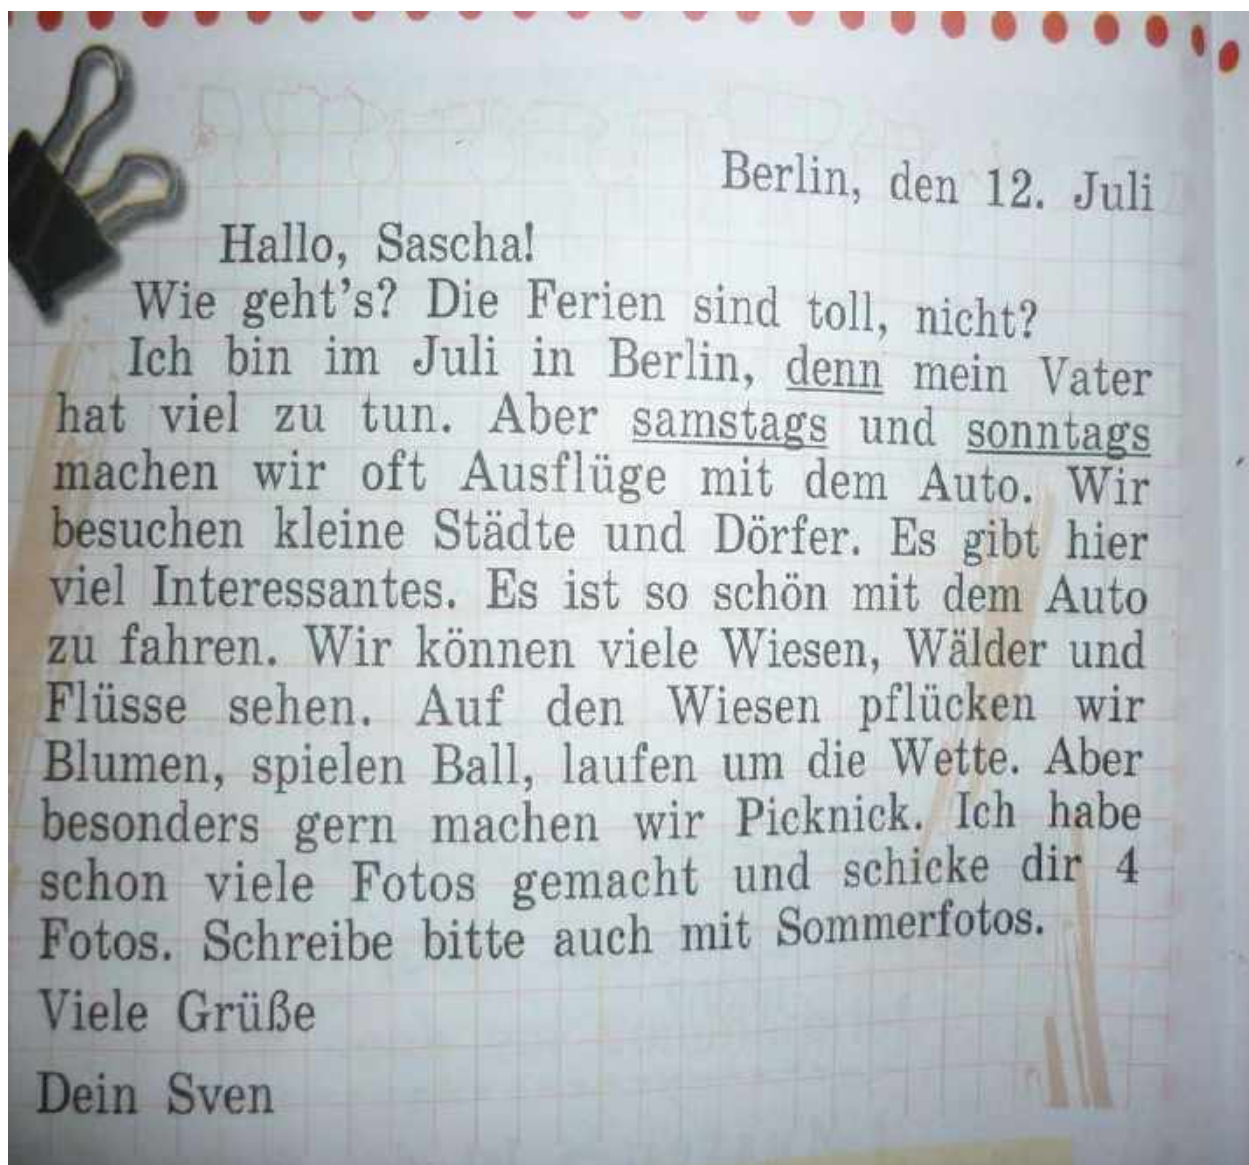 Berlin, den 12. Juli
Hallo, Sascha!
Wie geht's? Die Ferien sind toll, nicht?
Ich bin im Juli in Berlin, denn mein Vater
hat viel zu tun. Aber samstags und sonntags
machen wir oft Ausflüge mit dem Auto. Wir
besuchen kleine Städte und Dörfer. Es gibt hier
viel Interessantes. Es ist so schön mit dem Auto
zu fahren. Wir können viele Wiesen, Wälder und
Flüsse sehen. Auf den Wiesen pflücken wir
Blumen, spielen Ball, laufen um die Wette. Aber
besonders gern machen wir Picknick. Ich habe
schon viele Fotos gemacht und schicke dir 4
Fotos. Schreibe bitte auch mit Sommerfotos.
Viele Grüße
Dein Sven